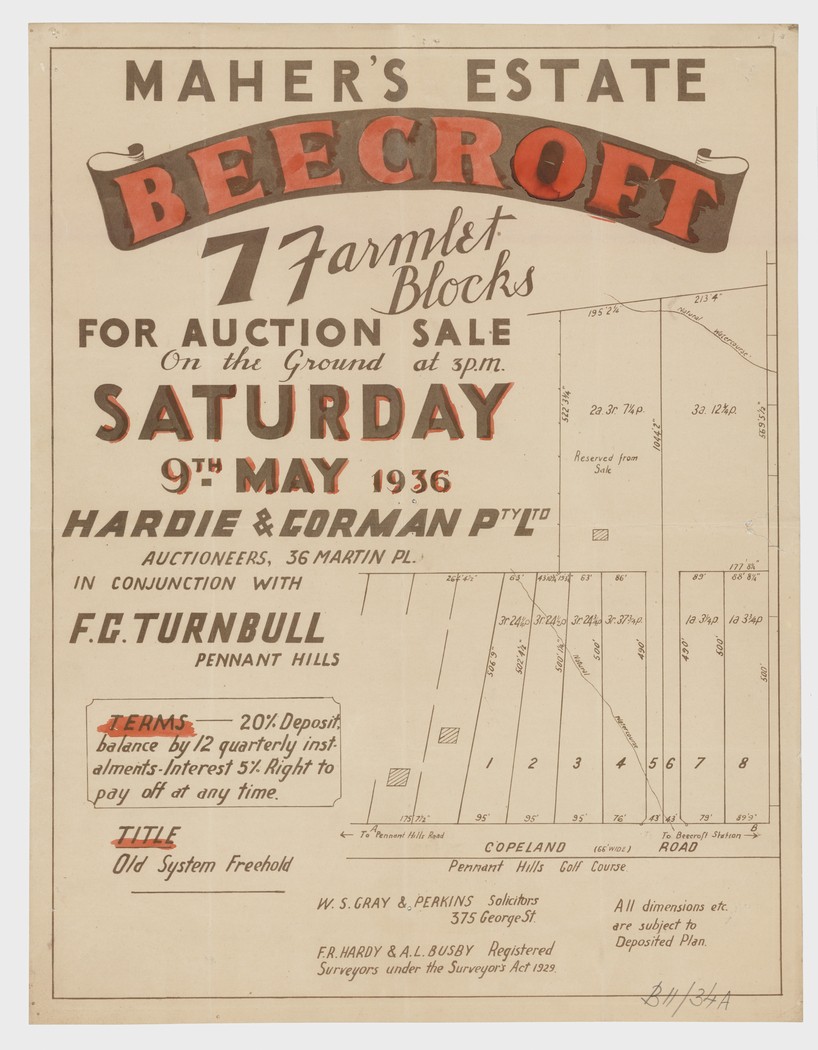 MAHER'S ESTATE
BEECROFT
7 Farmlet
Blocks
FOR AUCTION SALE
On the Ground at 3p.m.
SATURDAY
9TH MAY 1936
HARDIE & GORMAN PTY LTD
AUCTIONEERS, 36 MARTIN PL.
IN CONJUNCTION WITH
F.G. TURNBULL
PENNANT HILLS
TERMS — 20% Deposit,
balance by 12 quarterly inst-
alments-Interest 5% Right to
pay off at any time.
TITLE
Old System Freehold
195' 2¼
213' 4"
Natural Watercourse
522' 3¾"
2a. 3r 7¼p.
1044' 2"
3a. 12¾p.
569' 5½"
Reserved from
Sale
177' 8¾"
63' 63' 86' 89' 88' 8¼"
3r 37¼p. 1a 3¼p 1a 3¼p
506' 9" 502' 4½" 500' 1¾" 500' 490' 490' 500' 500'
Natural watercourse
1 2 3 4 5 6 7 8
175' 7½" 95' 95' 95' 76' 43' 43' 79' 89' 9"
A B
To Pennant Hills Road
To Beecroft Station
COPELAND (66' WIDE) ROAD
Pennant Hills Golf Course
W. S. GRAY & PERKINS Solicitors
375 George St.
F.R. HARDY & A.L. BUSBY Registered
Surveyors under the Surveyor's Act 1929.
All dimensions etc.
are subject to
Deposited Plan.
B11/34A